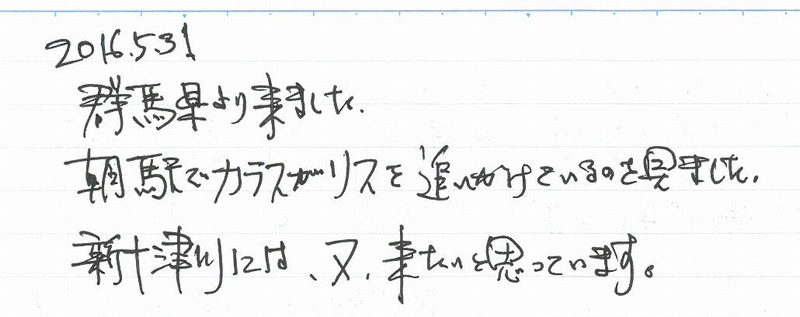 2016.5.31
群馬県より来ました.
朝駅でカラスがリスを追いかけているのを見ました.
新十津川には、又、来たいと思っています。